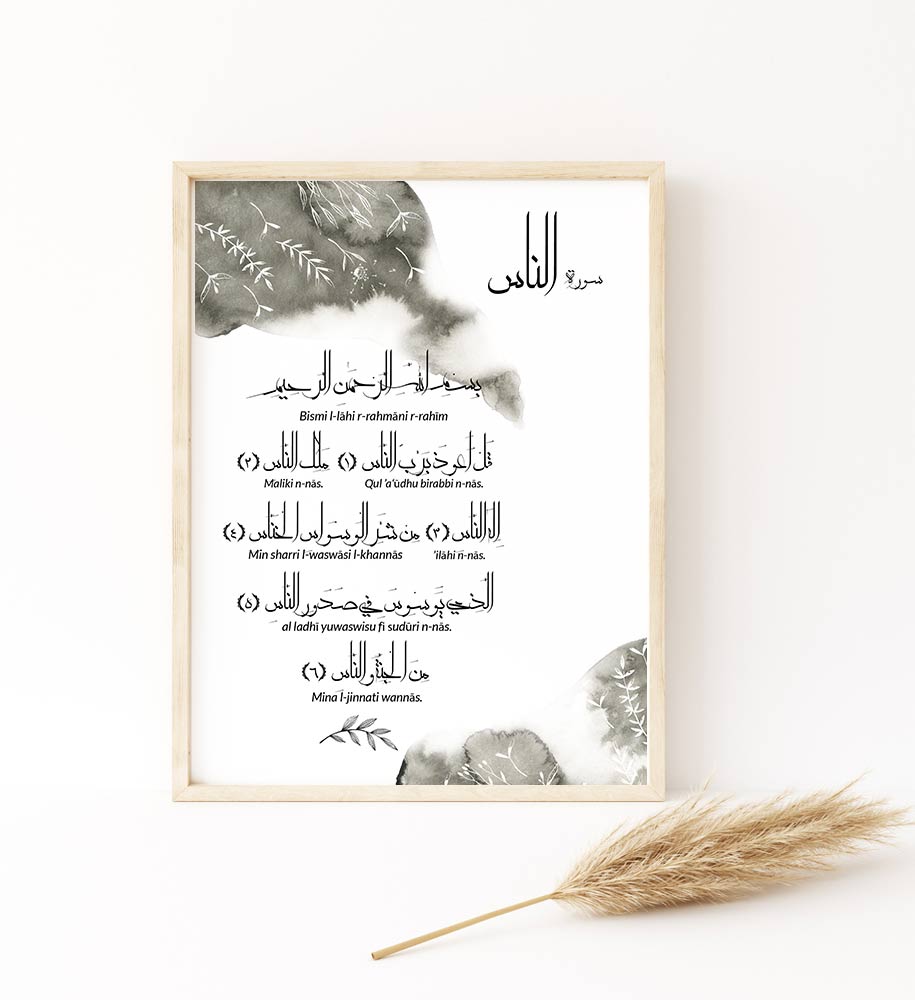 سورة الناس
بِسْمِ اللَّهِ الرَّحْمَنِ الرَّحِيمِ
Bismi l-lāhi r-rahmāni r-rahīm
قُلْ أَعُوذُ بِرَبِّ النَّاسِ (١) مَلِكِ النَّاسِ (٢)
Qul 'a'ūdhu birabbi n-nās. Maliki n-nās.
إِلَهِ النَّاسِ (٣) مِن شَرِّ الْوَسْوَاسِ الْخَنَّاسِ (٤)
'ilāhi n-nās. Min sharri l-waswāsi l-khannās
الَّذِي يُوَسْوِسُ فِي صُدُورِ النَّاسِ (٥)
al ladhī yuwaswisu fī sudūri n-nās.
مِنَ الْجِنَّةِ وَالنَّاسِ (٦)
Mina l-jinnati wannās.